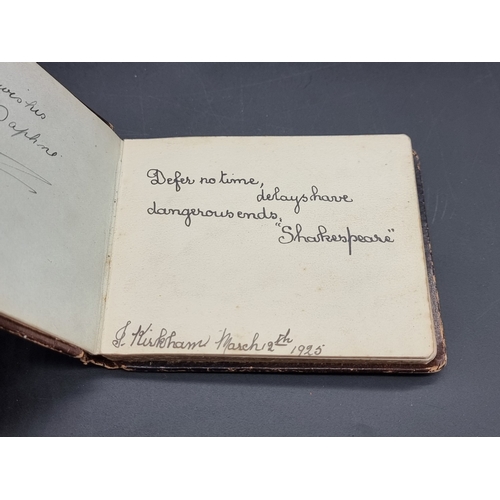 wishes
Daphne
Defer no time,
delays have
dangerous ends,
"Shakespeare"
J. Kirkham March 12th 1925